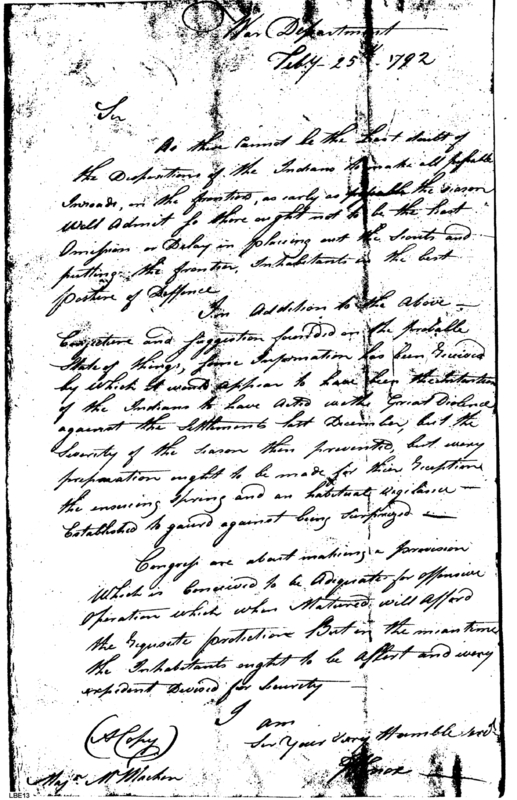 War Department
Feby 25th 1792
Sir
As there Cannot be the Least doubt of
the Dispositions of the Indians to make all possable
Inroads, on the frontiers, as early as the Season
Will Admit So there ought not to be the least
Omission or Delay in placeing out the Scouts and
putting the frontier, Inhabitants in the best
posture of Deffence
In Addition to the Above
Conjecture and Suggestion founded on the probable
State of things, Some Information has been Received
by Which it would Appear to have been the intention
of the Indians to have Acted with Great Violence
against the Settlements last December, but the
Severity of the Season then prevented, but every
preparation ought to be made for their Reception
the ensueing Spring and an habitual vigilance
Established to gaurd against being Surprized
Congress are about makeing a Provision
Which is Conceived to be Adiquate for offensive
Operation which when Matured will Afford
the Requisite protiction But in the meantime
the Inhabitants ought to be Alert and every
expedient Devised for Security
I am
Sir Your Very Humble Servt
HKnox
(A Copy)
Majr McMachen
LBE13